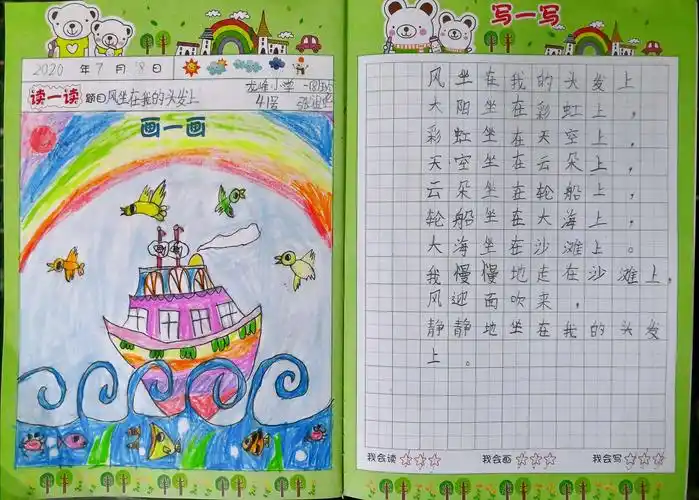 2020 年 7 月 8 日
龙峰小学
读一读 题目 风坐在我的头发上
41号
画一画
写一写
风坐在我的头发上
大阳坐在彩虹上，
彩虹坐在天空上，
天空坐在云朵上，
云朵坐在轮船上，
轮船坐在大海上，
大海坐在沙滩上。
我慢慢地走在沙滩上，
风迎面吹来，
静静地坐在我的头发
上。
我会读 ☆☆☆ 我会画 ☆☆☆ 我会写 ☆☆☆